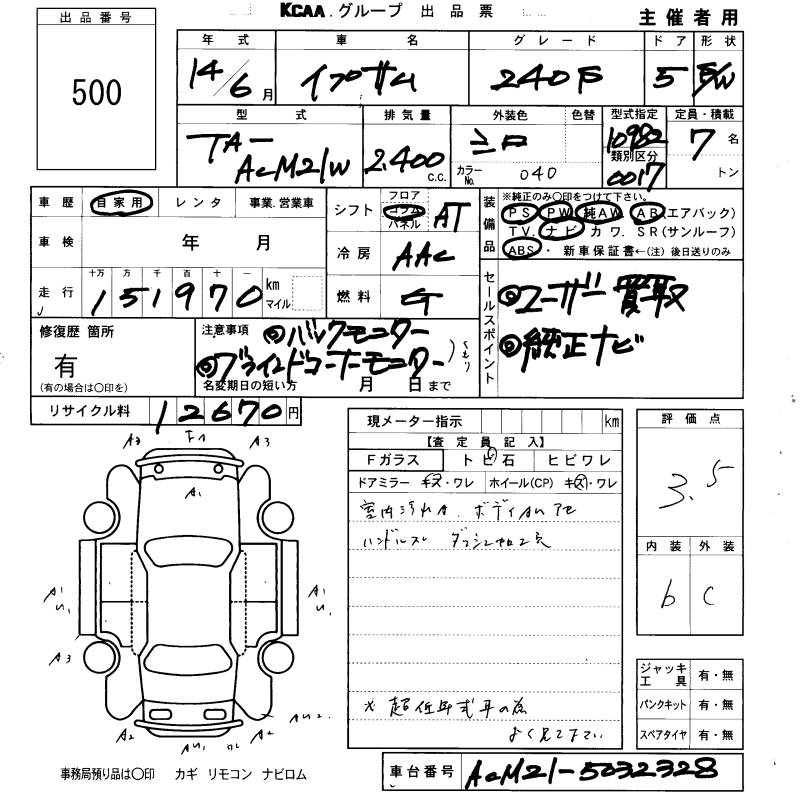 KCAA.グループ 出品票
主催者用
出品番号
500
年式 車名 グレード ドア 形状
14/6月 イプサム 240 5 S/W
型式 排気量 外装色 色替 型式指定 定員・積載
TA-ACM21W 2,400 C.C. シロ 10982 7名
類別区分
カラーNo. 040 0017 トン
車歴 自家用 レンタ 事業.営業車
シフト フロア コラム パネル AT
装備品
※純正のみ〇印をつけて下さい。
PS PW 純AW AB(エアバック)
TV. ナビ カワ. SR(サンルーフ)
ABS・新車保証書←(注)後日送りのみ
車検 年 月
冷房 AAC
走行 十万 万 千 百 十 一
151970 km マイル
燃料 G
セールスポイント
◎ユーザー買取
◎純正ナビ
修復歴 箇所
有
(有の場合は〇印を)
注意事項
◎バックモニター
◎ブラインドコーナーモニター
名変期日の短い方 月 日まで
リサイクル料 12670円
現メーター指示 km
【査定員記入】
Fガラス トビ石 ヒビワレ
ドアミラー キズ・ワレ ホイール(CP) キズ・ワレ
室内汚れA.
ハンドルスレ
※ 超低年式車の為
よく見て下さい
評価点
3.5
内装 外装
b C
ジャッキ工具 有・無
パンクキット 有・無
スペアタイヤ 有・無
A2 A3
A1
A1 A1
U1 U1
A3
A2
事務局預り品は〇印 カギ リモコン ナビロム
車台番号 ACM21-5032328